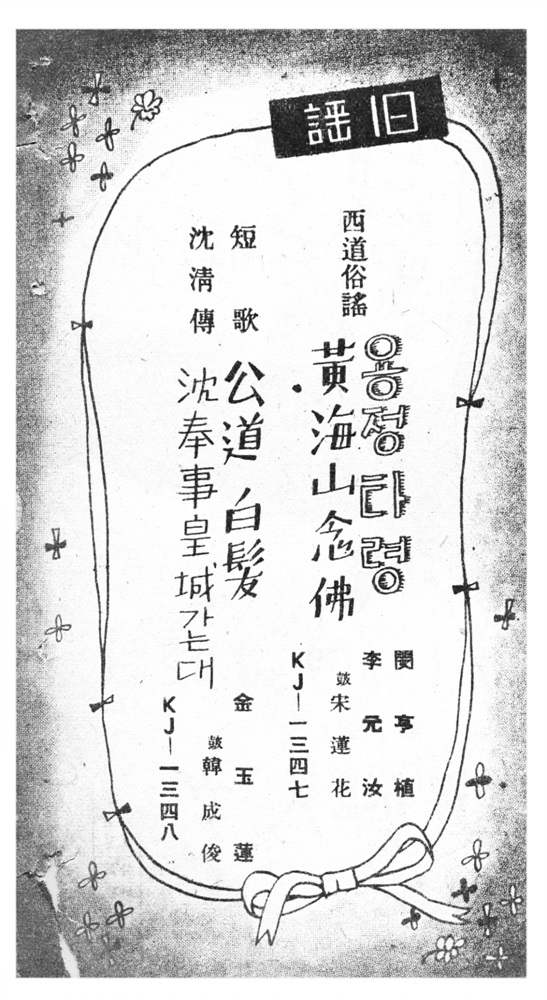 旧謡
西道俗謠
용정타령
黃海山念佛
閔亨植
李元汝
鼓 宋蓮花
KJ―一三四七
短歌 公道白髮
沈淸傳 沈奉事皇城가는대
金玉蓮
鼓 韓成俊
KJ―一三四八